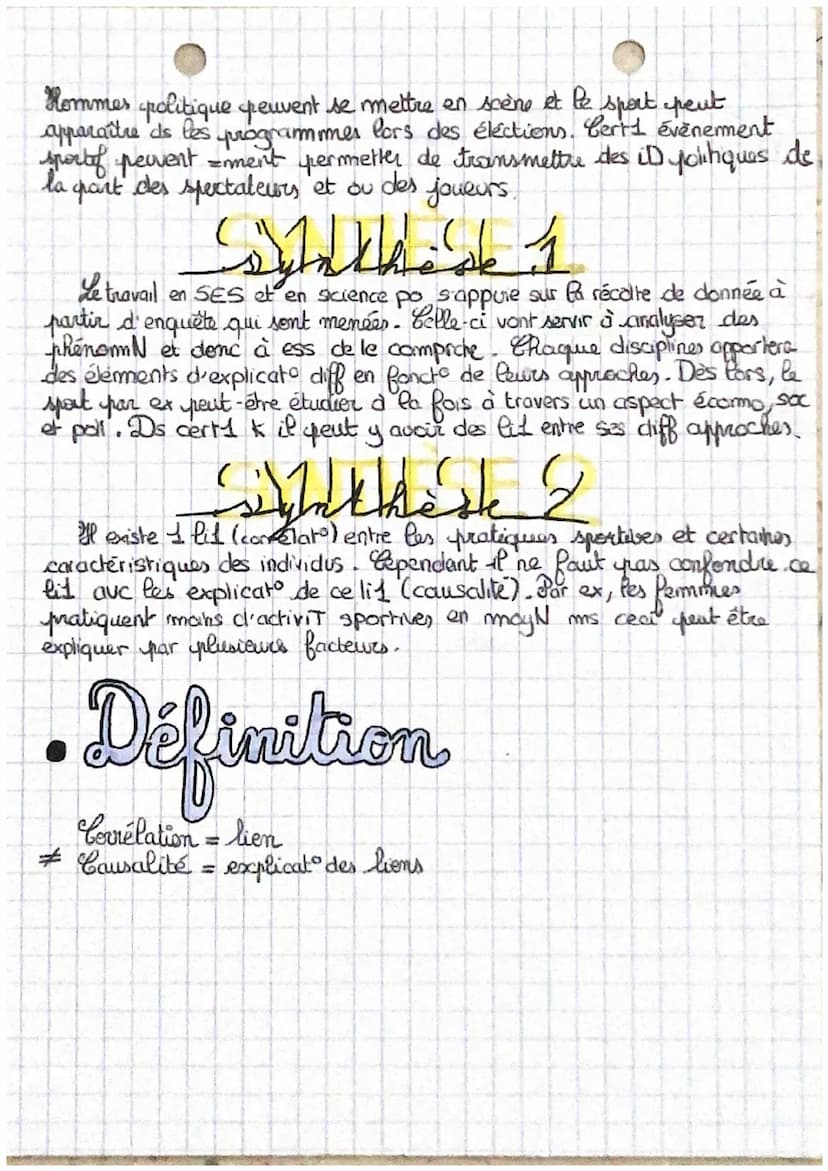 Hommes politique peuvent se mettre en scène et le sport peut
apparaître ds les programmes lors des éléctions. Cert1 évènement
sportif peuvent =ment permetter de transmettre des iD politiques de
la part des spectateurs et ou des joueurs.
SYNTHÈSE 1
Synthèse 1
Le travail en SES et en science po s'appuie sur la récolte de donnée à
partir d'enquête qui sont menées. Celle-ci vont servir à analyser des
phénomN et donc à ess de le comprdre. Chaque disciplines apportera
des éléments d'explicat° diff en fonct° de leurs approches. Dès lors, le
sport par ex peut-être étudier à la fois à travers un aspect économo, soc
et poli. Ds cert1 k il peut y avoir des li1 entre ses diff approches.
SYNTHÈSE 2
Synthèse 2
Il existe 1 li1 (corrélat°) entre les pratiques sportives et certaines
caractéristiques des individus. Cependant il ne faut pas confondre ce
li1 avc les explicat° de ce li1 (causalité). Par ex, les femmes
pratiquent moins d'activiT sportives en moyN ms ceci peut être
expliquer par plusieurs facteurs.
• Définition
Corrélation = lien
≠ Causalité = explicat° des liens